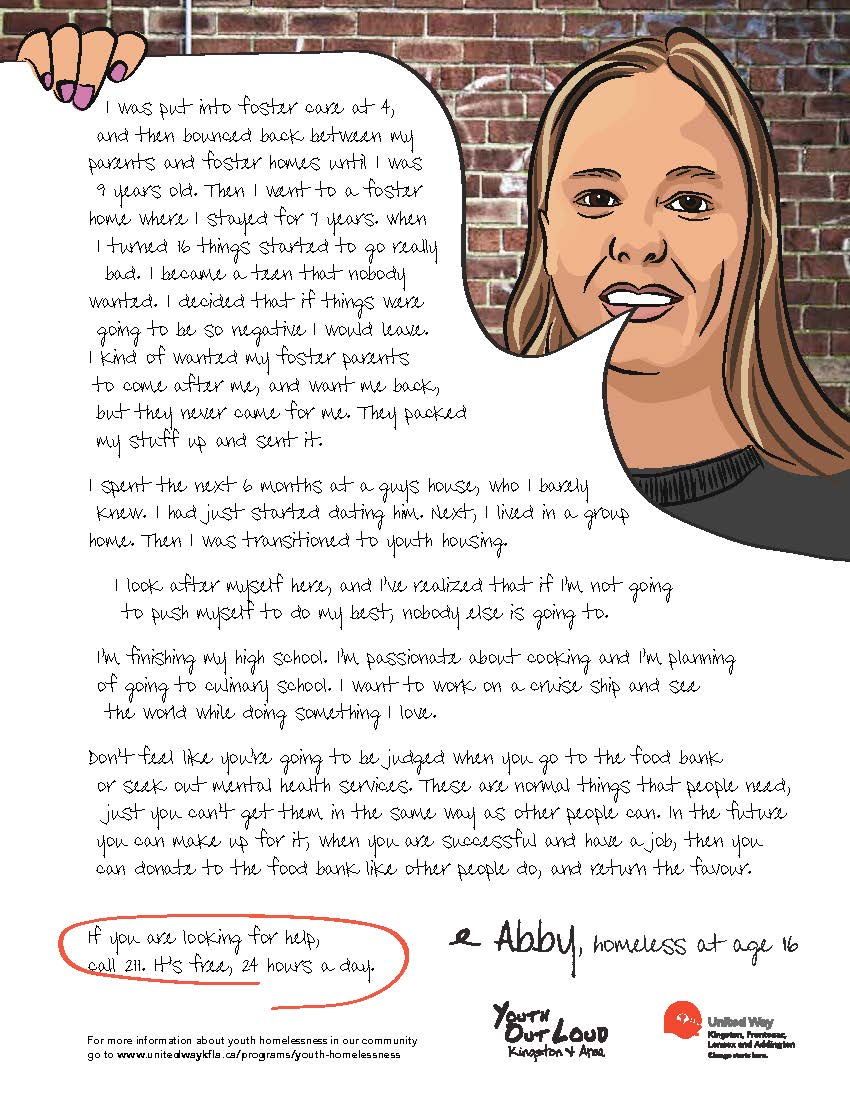 I was put into foster care at 4,
and then bounced back between my
parents and foster homes until I was
9 years old. Then I went to a foster
home where I stayed for 7 years. when
I turned 16 things started to go really
bad. I became a teen that nobody
wanted. I decided that if things were
going to be so negative I would leave.
I kind of wanted my foster parents
to come after me, and want me back,
but they never came for me. They packed
my stuff up and sent it.
I spent the next 6 months at a guys house, who I barely
knew. I had just started dating him. Next, I lived in a group
home. Then I was transitioned to youth housing.
I look after myself here, and I've realized that if I'm not going
to push myself to do my best, nobody else is going to.
I'm finishing my high school. I'm passionate about cooking and I'm planning
of going to culinary school. I want to work on a cruise ship and see
the world while doing something I love.
Don't feel like you're going to be judged when you go to the food bank
or seek out mental health services. These are normal things that people need,
just you can't get them in the same way as other people can. In the future
you can make up for it, when you are successful and have a job, then you
can donate to the food bank like other people do, and return the favour.
If you are looking for help,
call 211. It's free, 24 hours a day.
Abby, homeless at age 16
For more information about youth homelessness in our community
go to www.unitedwaykfla.ca/programs/youth-homelessness
Youth
Out Loud
Kingston & Area
United Way
Kingston, Frontenac,
Lennox and Addington
Change starts here.